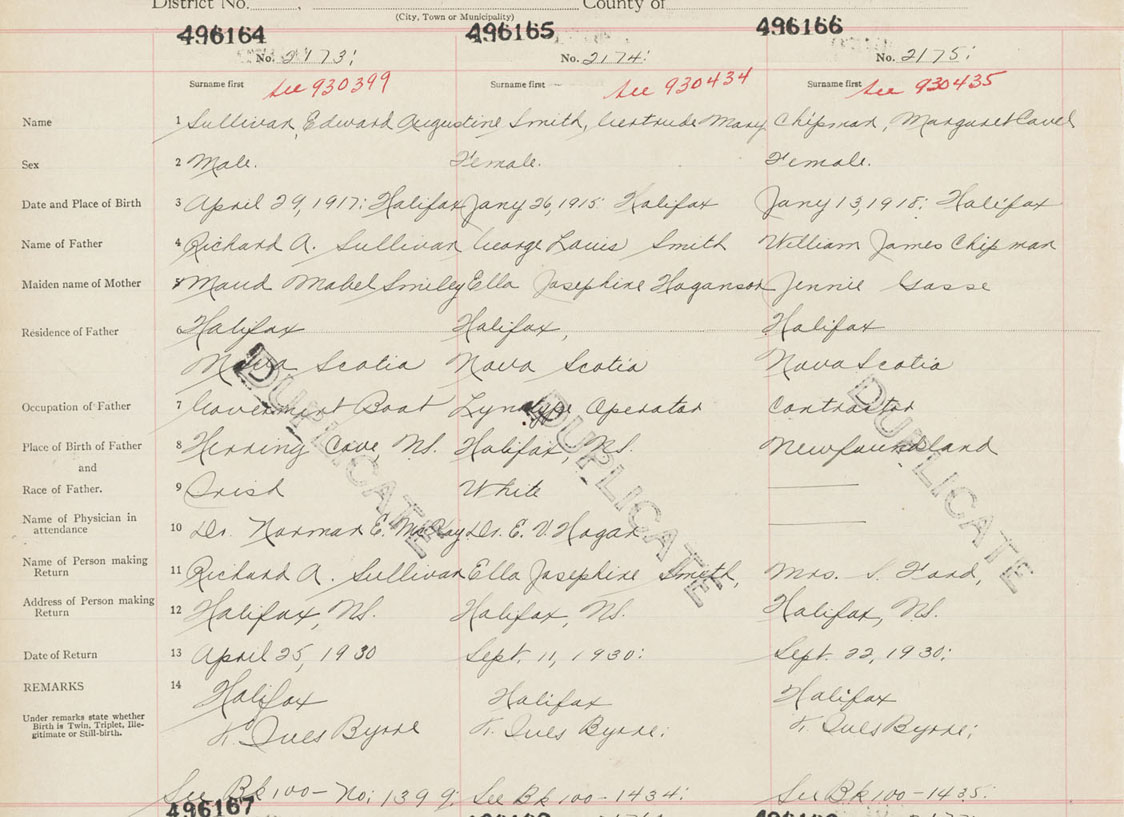 District No. , County of
(City, Town or Municipality)
496164 496165 496166
No. 2173; No. 2174: No. 2175;
Surname first Surname first Surname first
See 930399 See 930434 See 930435
Name 1 Sullivan, Edward Augustine Smith, Gertrude Mary Chipman, Margaret Cavel
Sex 2 Male. Female. Female.
Date and Place of Birth 3 April 29, 1917: Halifax Jany 26, 1915: Halifax Jany 13, 1918: Halifax
Name of Father 4 Richard A. Sullivan George Louis Smith William James Chipman
Maiden name of Mother 5 Maud Mabel Smiley Ella Josephine Haganson Jennie Gosse
Residence of Father 6 Halifax Halifax, Halifax
Nova Scotia Nova Scotia Nova Scotia
DUPLICATE DUPLICATE DUPLICATE
Occupation of Father 7 Government Boat Lynotype Operator Contractor
Place of Birth of Father 8 Herring Cove, NS. Halifax, NS. Newfoundland
and
Race of Father. 9 Irish White
Name of Physician in
attendance 10 Dr. Norman E. McKay Dr. E. V. Hogan
Name of Person making
Return 11 Richard A. Sullivan Ella Josephine Smith, Mrs. S. Ford,
Address of Person making
Return 12 Halifax, NS. Halifax, NS. Halifax, NS.
Date of Return 13 April 25, 1930 Sept. 11, 1930: Sept. 22, 1930;
REMARKS 14 Halifax Halifax Halifax
Under remarks state whether
Birth is Twin, Triplet, Ille-
gitimate or Still-birth.
Byrne Byrne; Byrne;
See Bk 100 - No; 1399; See Bk 100 - 1434; See Bk 100 - 1435;
496167